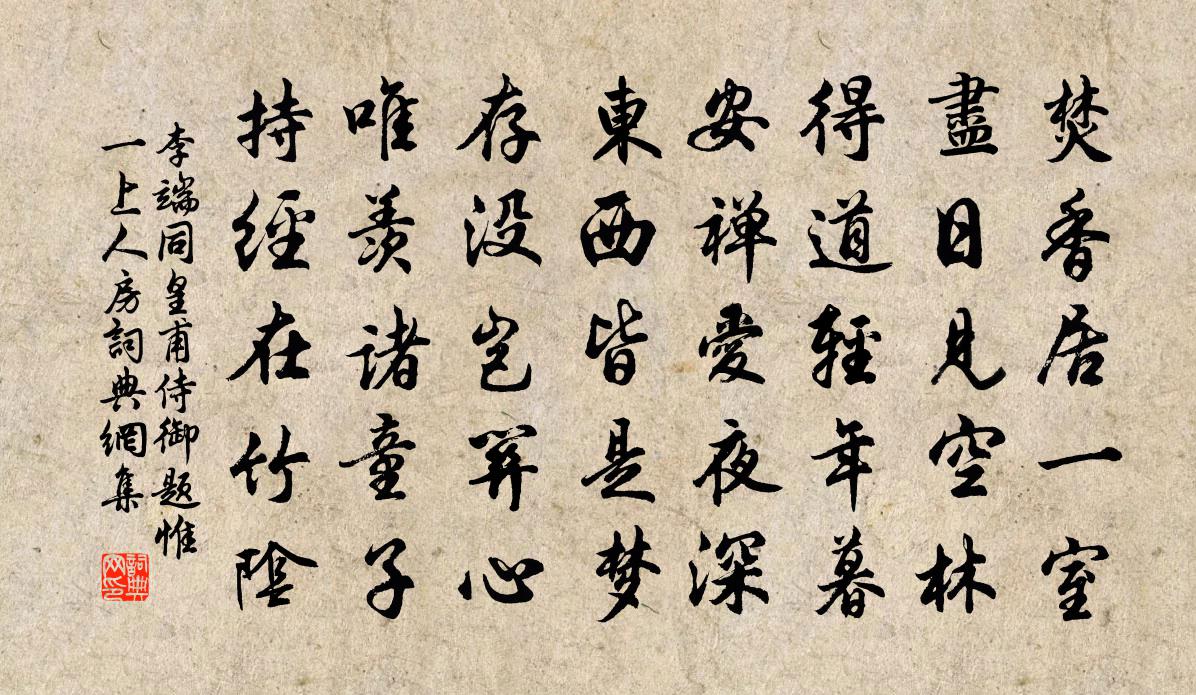 焚香居一室
盡日見空林
得道輕年暮
安禅愛夜深
東西皆是夢
存没岂關心
唯羨諸童子
持經在竹陰
李端同皇甫侍御题惟
一上人房詞典網集
詞典
网印